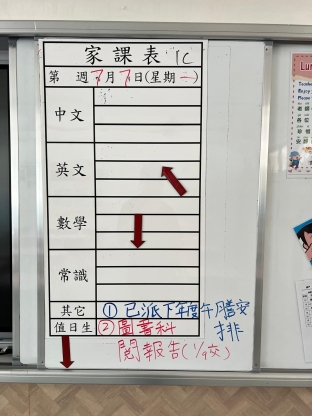 家課表 1C
第 週 7月7日(星期一)
中文
英文
數學
常識
其它 ①已派下年度午膳安排
值日生 ②圖書科
閱報告(1/9交)